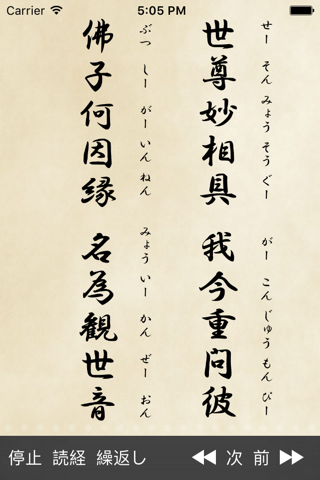 Carrier 5:05 PM
世尊妙相具 我今重問彼
せー そん みょう そう ぐー がー こん じゅう もん ぴー
佛子何因縁 名為觀世音
ぶつ しー がー いん ねん みょう いー かん ぜー おん
停止 読経 繰返し 次 前